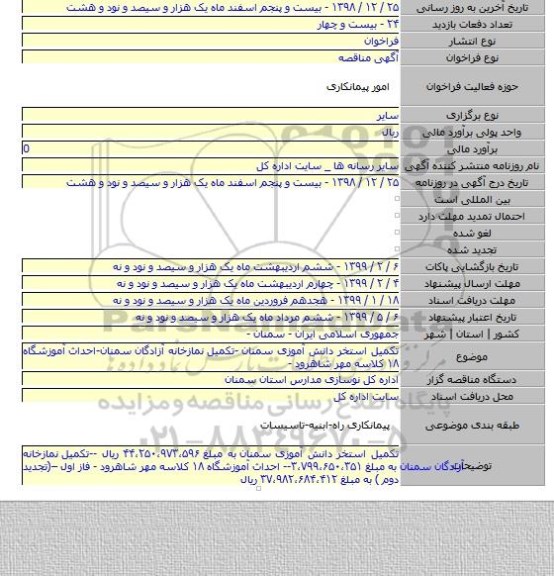 تاریخ آخرین به روز رسانی ۲۵ / ۱۲ / ۱۳۹۸ - بیست و پنجم اسفند ماه یک هزار و سیصد و نود و هشت
تعداد دفعات بازدید ۲۴ - بیست و چهار
نوع انتشار فراخوان
نوع فراخوان آگهی مناقصه
حوزه فعالیت فراخوان امور پیمانکاری
نوع برگزاری سایر
واحد پولی برآورد مالی ریال
برآورد مالی 0
نام روزنامه منتشر کننده آگهی سایر رسانه ها _ سایت اداره کل
تاریخ درج آگهی در روزنامه ۲۵ / ۱۲ / ۱۳۹۸ - بیست و پنجم اسفند ماه یک هزار و سیصد و نود و هشت
بین المللی است
احتمال تمدید مهلت دارد
لغو شده
تجدید شده
تاریخ بازگشایی پاکات ۶ / ۲ / ۱۳۹۹ - ششم اردیبهشت ماه یک هزار و سیصد و نود و نه
مهلت ارسال پیشنهاد ۴ / ۲ / ۱۳۹۹ - چهارم اردیبهشت ماه یک هزار و سیصد و نود و نه
مهلت دریافت اسناد ۱۸ / ۱ / ۱۳۹۹ - هجدهم فروردین ماه یک هزار و سیصد و نود و نه
تاریخ اعتبار پیشنهاد ۶ / ۵ / ۱۳۹۹ - ششم مرداد ماه یک هزار و سیصد و نود و نه
کشور | استان | شهر جمهوری اسلامی ایران - سمنان -
موضوع تکمیل استخر دانش آموزی سمنان -تکمیل نمازخانه آزادگان سمنان-احداث آموزشگاه
۱۸ کلاسه مهر شاهرود -
دستگاه مناقصه گزار اداره کل نوسازی مدارس استان سمنان
محل دریافت اسناد سایت اداره کل
پایگاه اطلاع رسانی مناقصه و مزایده
طبقه بندی موضوعی پیمانکاری راه-ابنیه-تاسیسات
۰۲۱-۸۸۳۴۹۶۷۰-۵
تکمیل استخر دانش آموزی سمنان به مبلغ ۴۴،۲۵۰،۹۷۳،۵۹۶ ریال --تکمیل نمازخانه
توضیحات آزادگان سمنان به مبلغ ۳،۷۹۹،۶۵۰،۳۵۱-- احداث آموزشگاه ۱۸ کلاسه مهر شاهرود - فاز اول –(تجدید
دوم ) به مبلغ ۳۷،۹۸۲،۶۸۴،۴۱۲ ریال